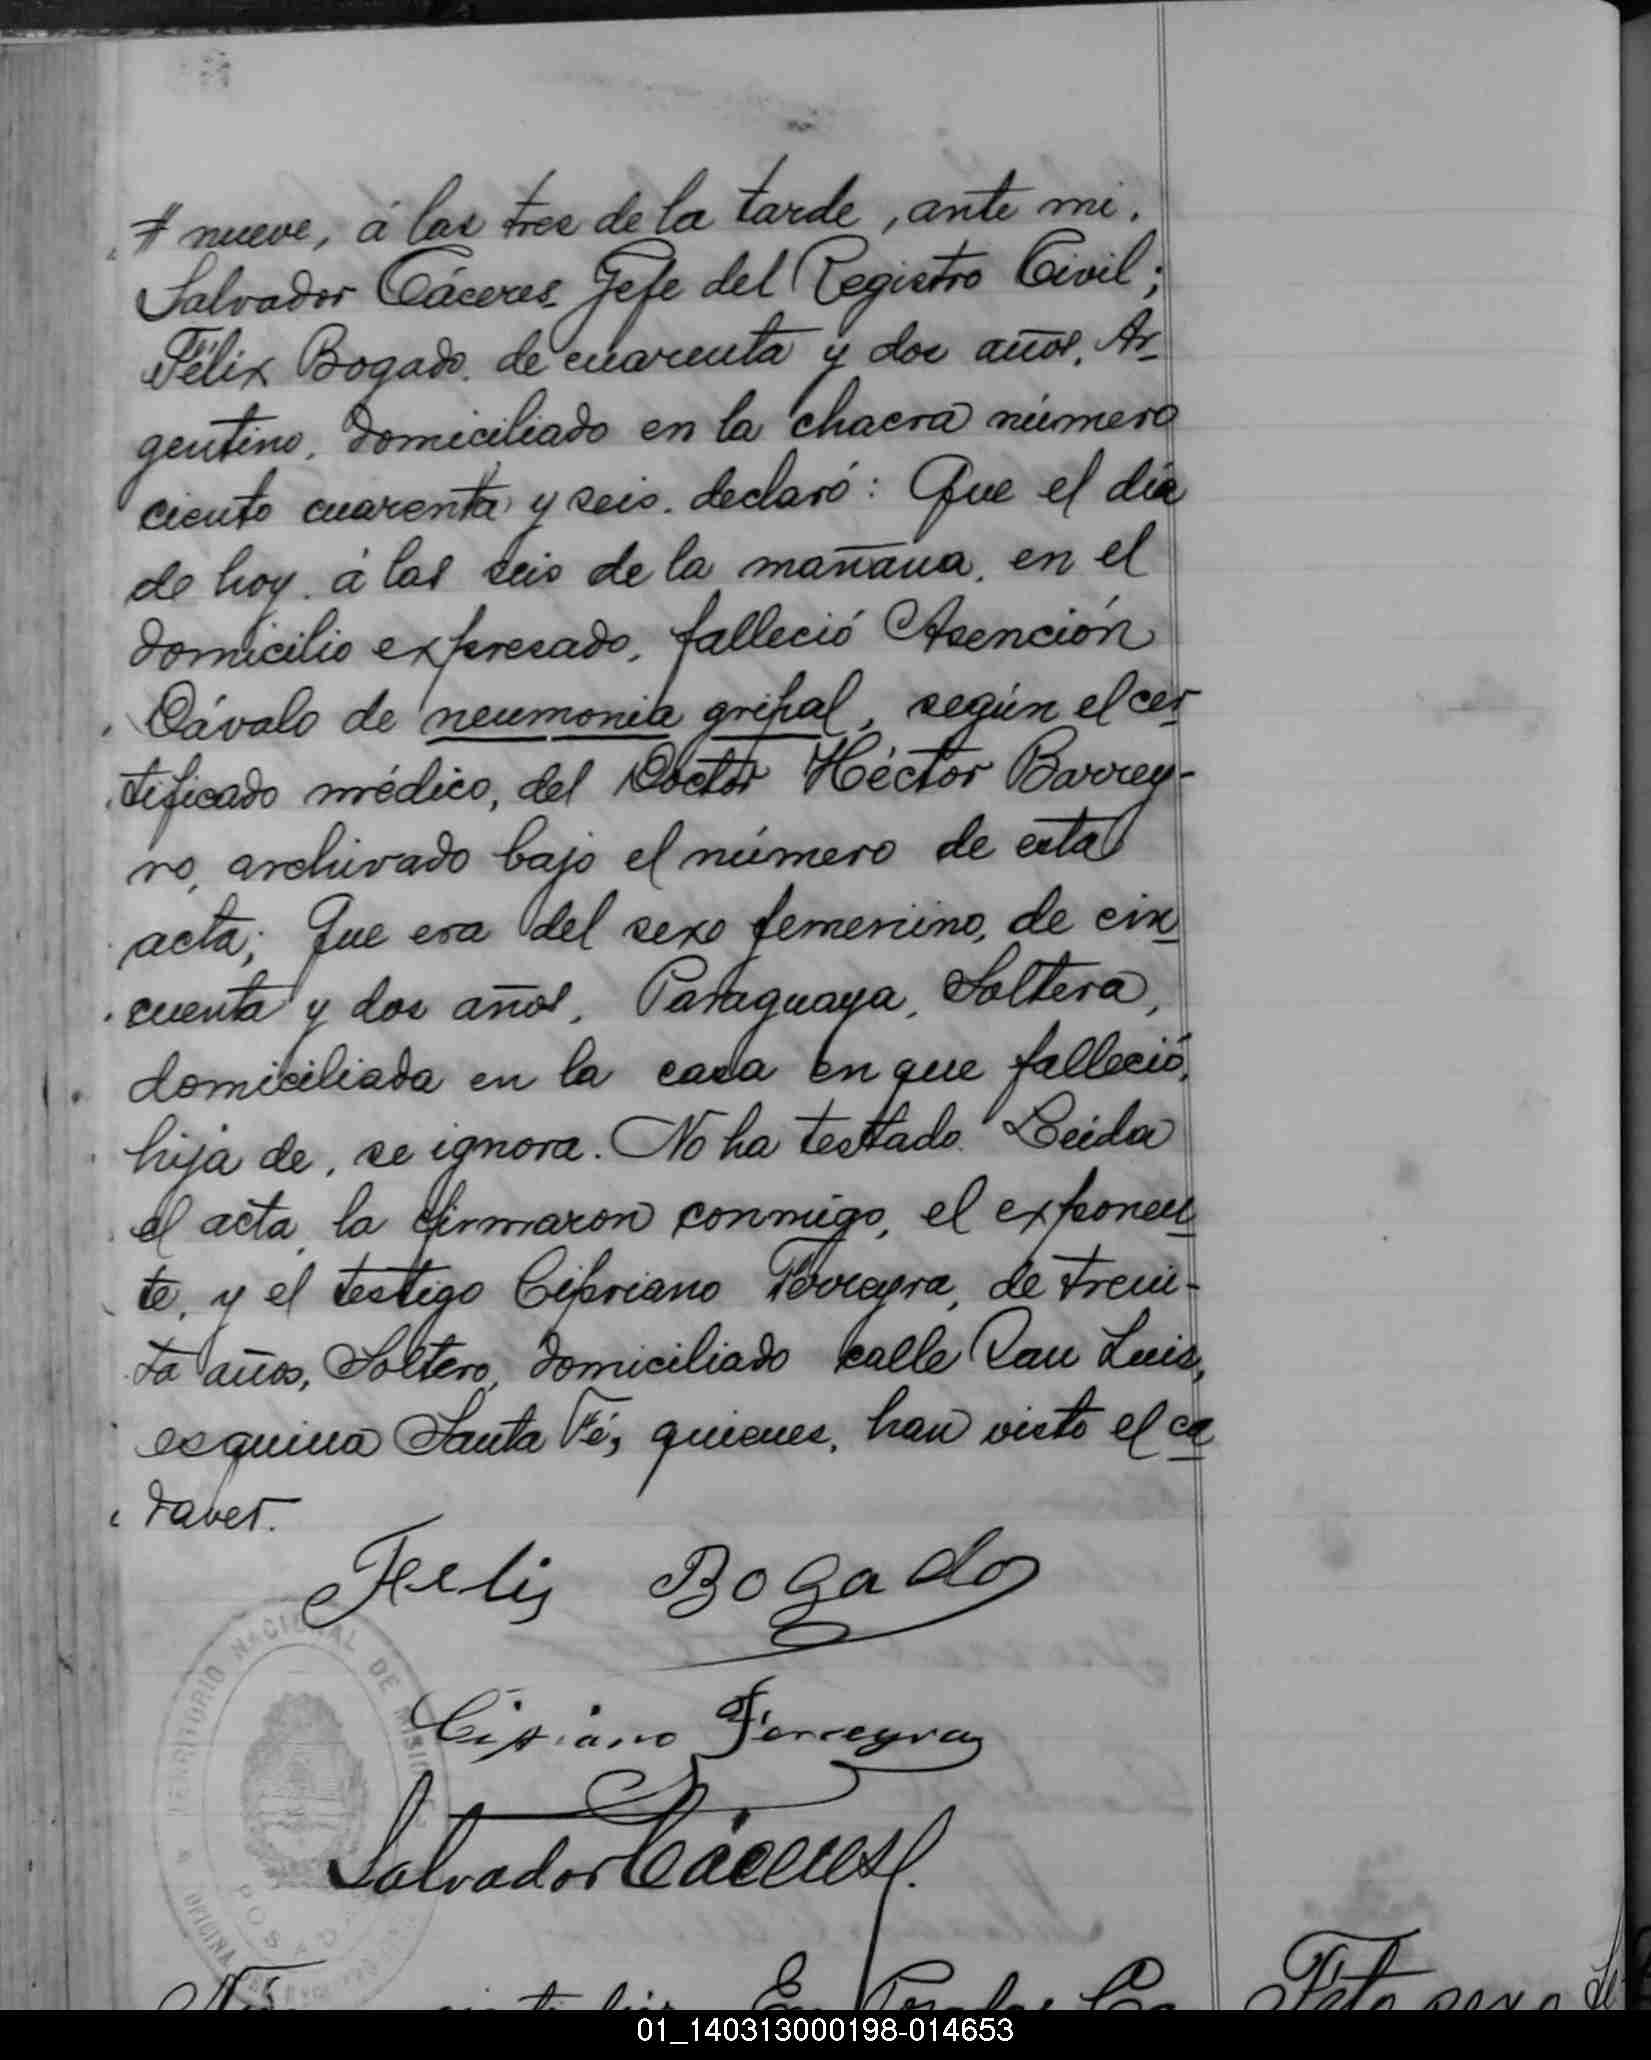 nueve, á las tres de la tarde, ante mi,
Salvador Cáceres Jefe del Registro Civil;
Félix Bogado, de cuarenta y dos años, Ar-
gentino, domiciliado en la chacra número
ciento cuarenta y seis, declaró: Que el día
de hoy, á las seis de la mañana, en el
domicilio expresado, falleció Asención
Dávalo de neumonia gripal, según el cer-
tificado médico, del Doctor Héctor Barrey-
ro, archivado bajo el número de esta
acta; Que era del sexo femenino, de cin-
cuenta y dos años, Paraguaya, Soltera,
domiciliada en la casa en que falleció,
hija de, se ignora. No ha testado. Leida
el acta, la firmaron conmigo, el exponen-
te, y el testigo Cipriano Ferreyra, de trein-
ta años, Soltero, domiciliado calle San Luis,
esquina Santa Fé, quienes, han visto el ca-
daver.
Felis Bogado
Cipriano Ferreyra
Salvador Cáceres
TERRITORIO NACIONAL DE MISIONES
OFICINA
POSADAS
En Posadas Ca
Feto sexo
01_140313000198-014653